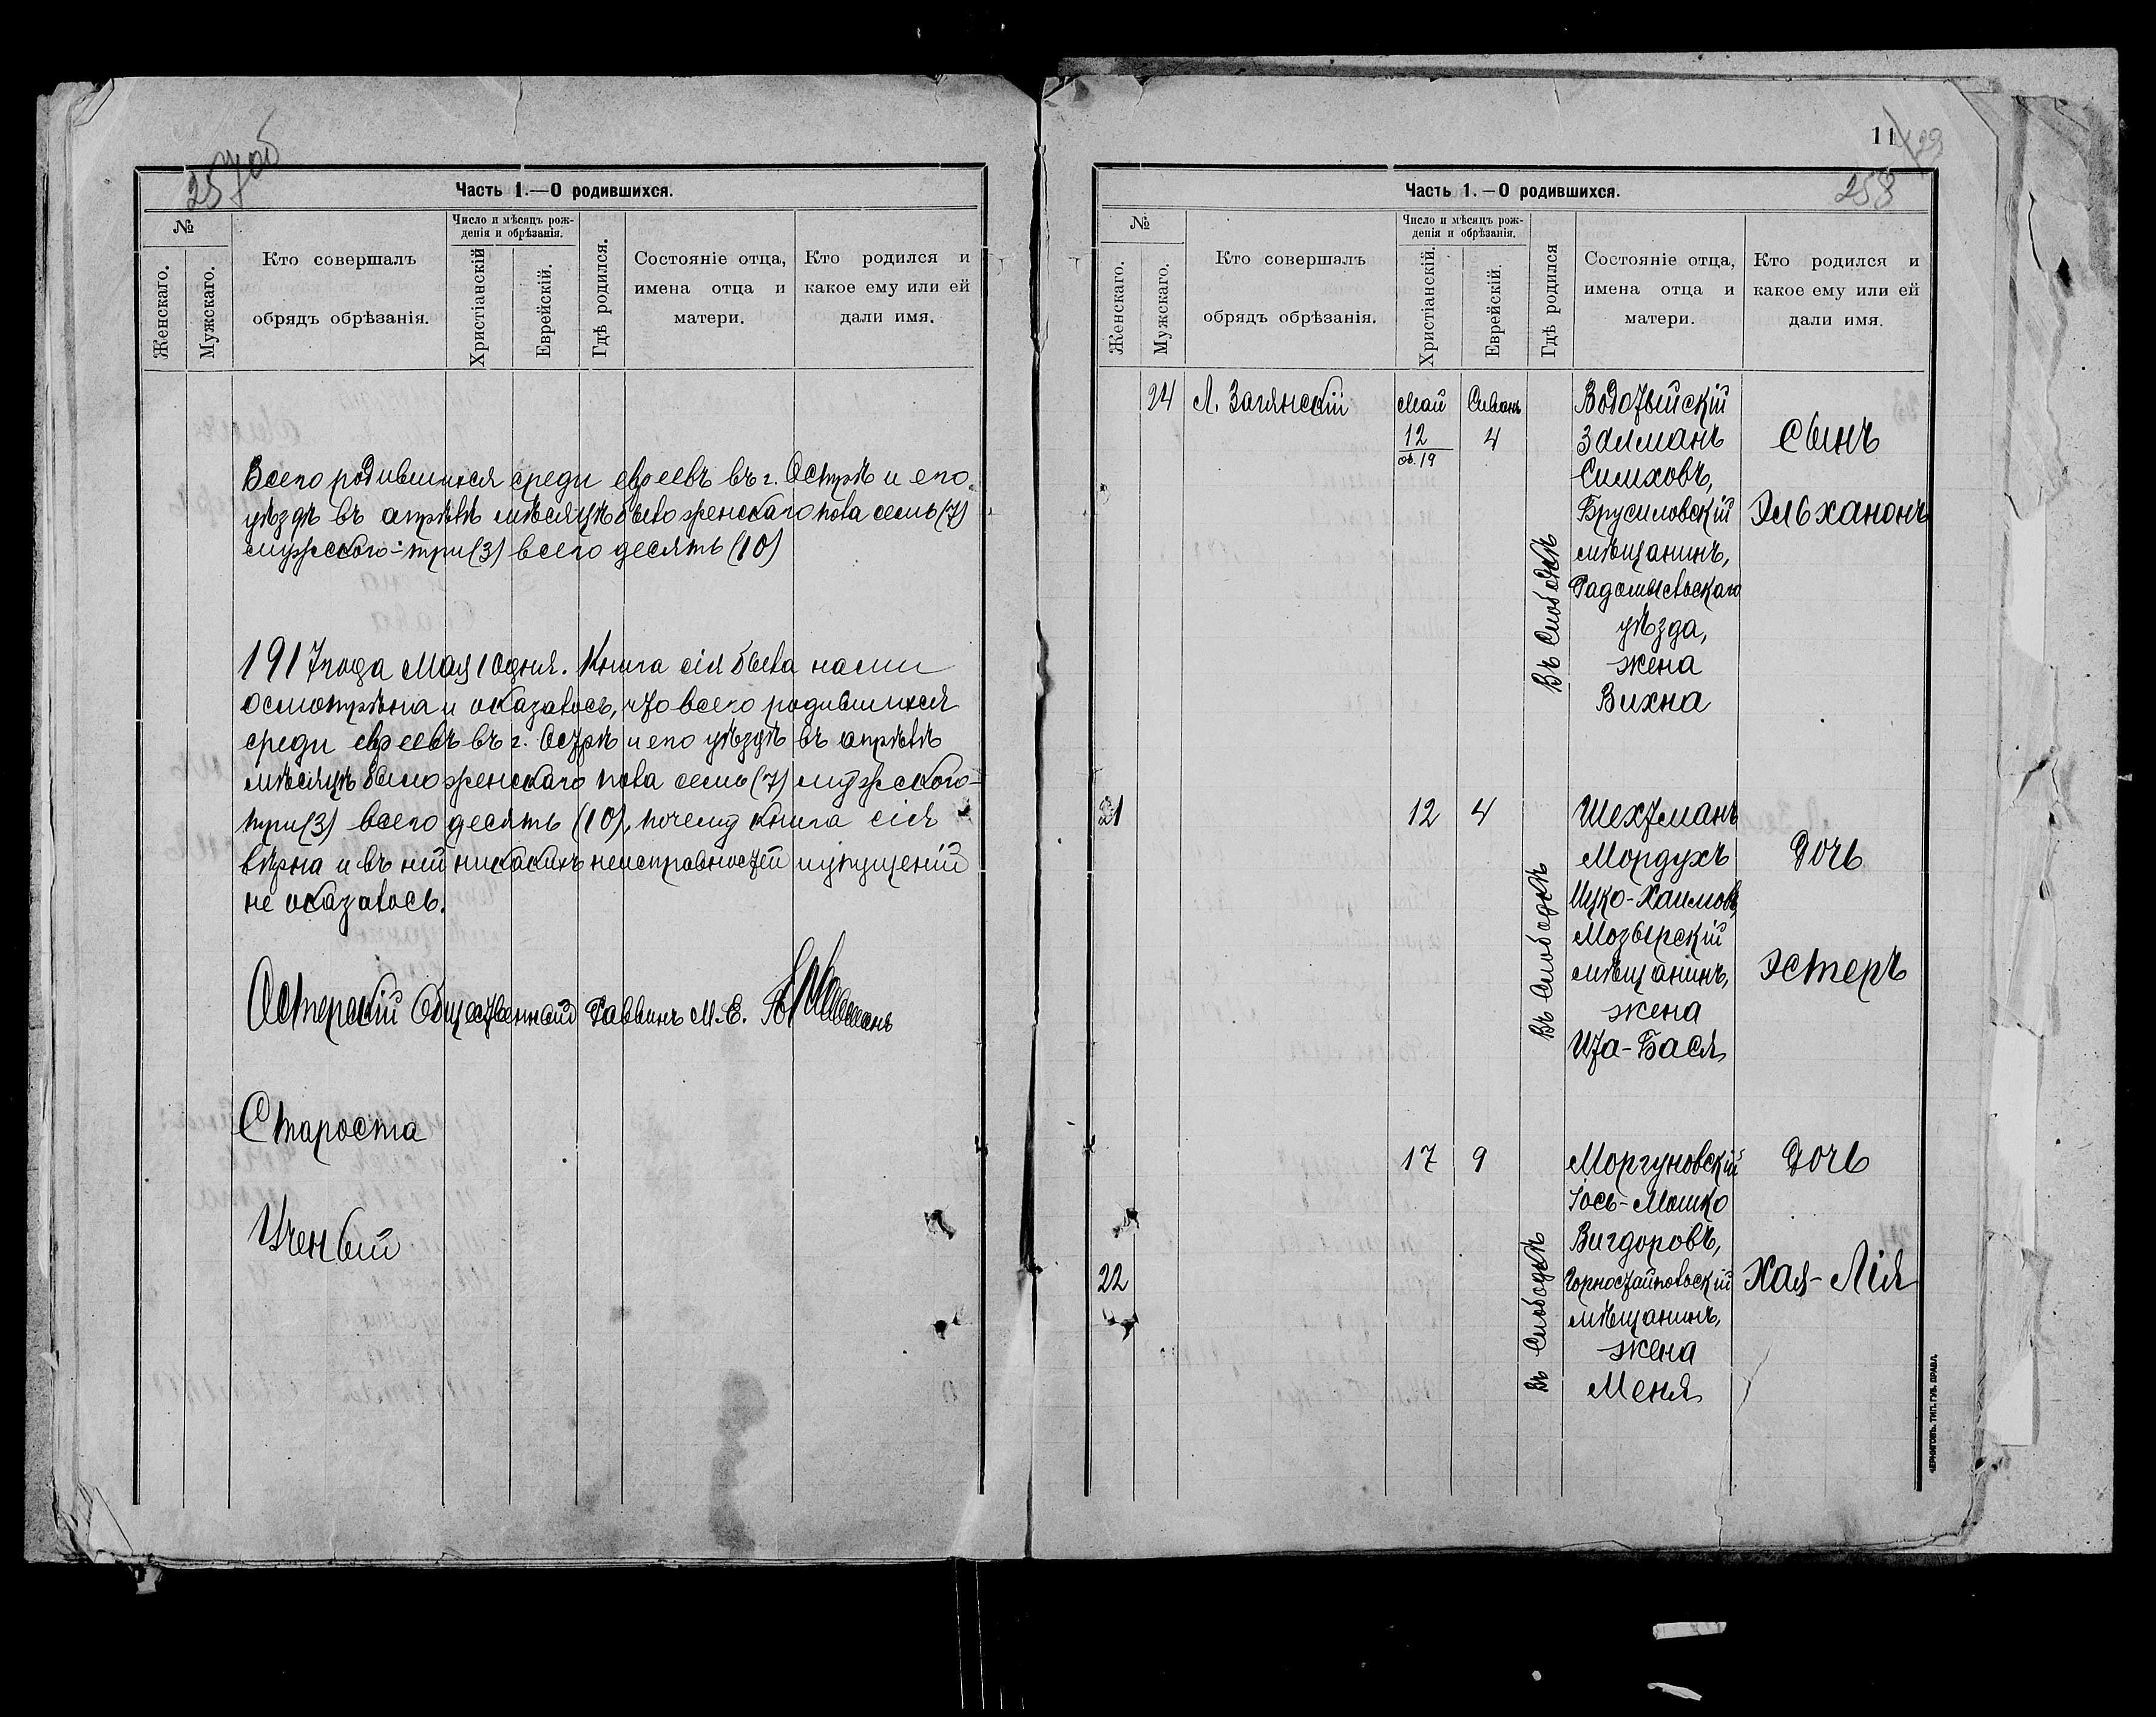 257об
Часть 1.—О родившихся.
№
Женскаго.
Мужскаго.
Кто совершалъ
обрядъ обрѣзанія.
Число и мѣсяцъ рож-
денія и обрѣзанія.
Христіанскій
Еврейскій.
Гдѣ родился.
Состояніе отца,
имена отца и
матери.
Кто родился и
какое ему или ей
дали имя.
Всего родившихся среди евреевъ въ г. Острѣ и его
уѣздѣ въ апрѣлѣ мѣсяцѣ было женскаго пола семь (7)
мужского - три (3) всего десять (10)
1917 года Мая 10 дня. Книга сія была нами
осмотрѣна и оказалось, что всего родившихся
среди евреевъ въ г. Острѣ и его уѣздѣ въ апрѣлѣ
мѣсяцѣ было женскаго пола семь (7) мужского-
три (3) всего десять (10), почему книга сія
вѣрна и въ ней никакихъ неисправностей и упущеній
не оказалось.
Остерскій Общественный Раввинъ М. Е.
Староста
Ученый
11
258
Часть 1.—О родившихся.
№
Женскаго.
Мужскаго.
Кто совершалъ
обрядъ обрѣзанія.
Число и мѣсяцъ рож-
денія и обрѣзанія.
Христіанскій.
Еврейскій.
Гдѣ родился
Состояніе отца,
имена отца и
матери.
Кто родился и
какое ему или ей
дали имя.
24 Л. Загянскій Май Сиванъ
12 4
об. 19
Въ Слободкѣ
Водотыйскій
Залманъ
Симховъ,
Брусиловскій
мѣщанинъ,
Радомысльскаго
уѣзда,
жена
Вихна
Сынъ
Эльханонъ
21 12 4
Въ Слободкѣ
Шехтманъ
Мордухъ
Ицко-Хаимовъ,
Мозырскій
мѣщанинъ,
жена
Ита-Бася
Дочь
Эстеръ
22 17 9
Въ Слободкѣ
Моргуновскій
Іось-Мошко
Вигдоровъ,
Горностайпольскій
мѣщанинъ,
жена
Меня
Дочь
Хая-Лія
ЧЕРНИГОВЪ. ТИП. ГУБ. ПРАВЛ.